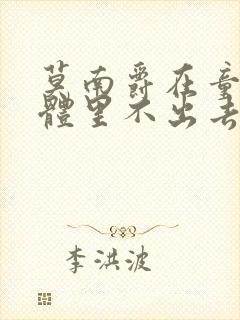 莫南爵在童
體里不出去
李洪波